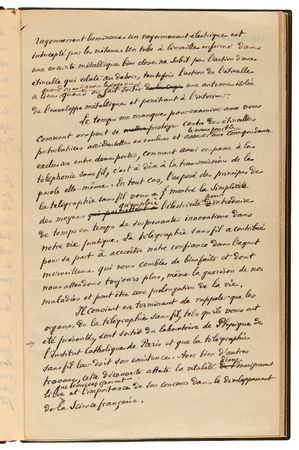 rayonnement lumineux un rayonnement électrique est
intercepté par les métaux. Un tube à limaille enfermé dans
une enceinte métallique bien close ne subit par l'action d'une
étincelle qui éclate au dehors, toutefois l'action de l'étincelle
a lieu quand
de l'enveloppe métallique et pénétrant à l'intérieur.
une antenne isolée
Le temps me manque pour examiner avec vous
comment on peut se protéger contre des étincelles
perturbatrices accidentelles ou voulues et assurer une correspondance
exclusive entre deux postes, comment aussi on passe à la
téléphonie sans fil, c'est à dire à la transmission de la
parole elle même. En tout cas, l'exposé des principes de
la télégraphie sans fil vous a montré la simplicité
des moyens qu'emploie l'électricité pour introduire
de temps en temps de surprenantes innovations dans
notre vie pratique. La télégraphie sans fil a contribué
pour sa part à accroître notre confiance dans l'agent
merveilleux qui nous comble de bienfaits et dont
nous attendons toujours plus, même la guérison de nos
maladies et peut être une prolongation de la vie.
Il convient en terminant de rappeler que les
organes de la télégraphie sans fil, tels qu'ils vous ont
été présentés, sont sortis du laboratoire de Physique de
l'Institut Catholique de Paris et que la télégraphie
sans fil leur doit son existence. Avec bien d'autres
travaux, cette découverte atteste la vitalité d'un enseignement
libre et l'importance de son concours dans le développement
de la Science française.